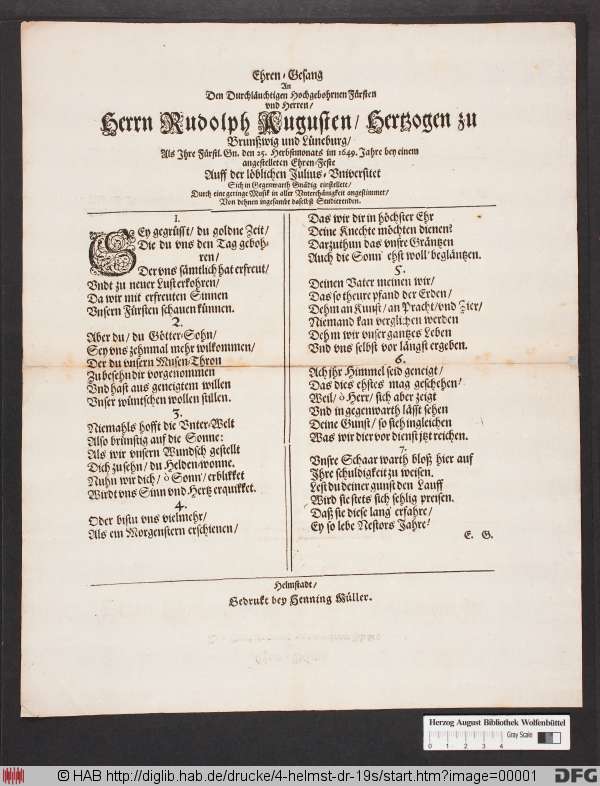 Ehren-Gesang
An
Den Durchläuchtigen Hochgebohrnen Fürsten
vnd Herren/
Herrn Rudolph Augusten/ Hertzogen zu
Brunßwig und Lüneburg/
Als Ihre Fürstl. Gn. den 25. Herbstmonats im 1649. Jahre bey einem
angestelleten Ehren-Feste
Auff der löblichen Julius-Vniversitet
Sich in Gegenwarth Gnädig einstellete/
Durch eine geringe Musik in aller Vnterthänigkeit angestimmet/
Von dehnen ingesambt daselbst Studierenden.
1.
SEy gegrüsst/ du goldne Zeit/
Die du vns den Tag geboh-
ren/
Der vns sämtlich hat erfreut/
Vndt zu neuer Lust erkohren/
Da wir mit erfreuten Sinnen
Vnsern Fürsten schauen künnen.
2.
Aber du/ du Götter-Sohn/
Sey vns zehnmal mehr wilkommen/
Der du vnsern Musen-Thron
Zu besehn dir vorgenommen
Vnd hast aus geneigtem willen
Vnser wüntschen wollen stillen.
3.
Niemahls hofft die Vnter-Welt
Also brünstig auff die Sonne:
Als wir vnsern Wundsch gestellt
Dich zu sehn/ du Helden-wonne.
Nuhn wir dich/ ô Sonn/ erblikket
Wirdt vns Sinn vnd Hertz erquikket.
4.
Oder bistu vns vielmehr/
Als ein Morgenstern erschienen/
Das wir dir in höchster Ehr
Deine Knechte möchten dienen?
Darzu thun das vnsre Gräntzen
Auch die Sonn' ehst woll' begläntzen.
5.
Deinen Vater meinen wir/
Das so theure pfand der Erden/
Dehm an Kunst/ an Pracht/ vnd Zier/
Niemand kan verglichen werden
Dehm wir vnser gantzes Leben
Vnd vns selbst vor längst ergeben.
6.
Ach ihr Himmel seid geneigt/
Das dies ehstes mag geschehen/
Weil/ ô Herr/ sich aber zeigt
Vnd in gegenwarth lässt sehen
Deine Gunst/ so sich ingleichen
Was wir dier vor dienst jtzt reichen.
7.
Vnsre Schaar warth bloß hier auf
Ihre schuldigkeit zu weisen.
Lest du deiner gunst den Lauff
Wird sie stets sich sehlig preisen.
Daß sie diese lang' erfahre/
Ey so lebe Nestors Jahre!
E. G.
Helmstadt/
Gedrukt bey Henning Müller.
Herzog August Bibliothek Wolfenbüttel
0 1 2 3 4
Gray Scale
© HAB http://diglib.hab.de/drucke/4-helmst-dr-19s/start.htm?image=00001
DFG